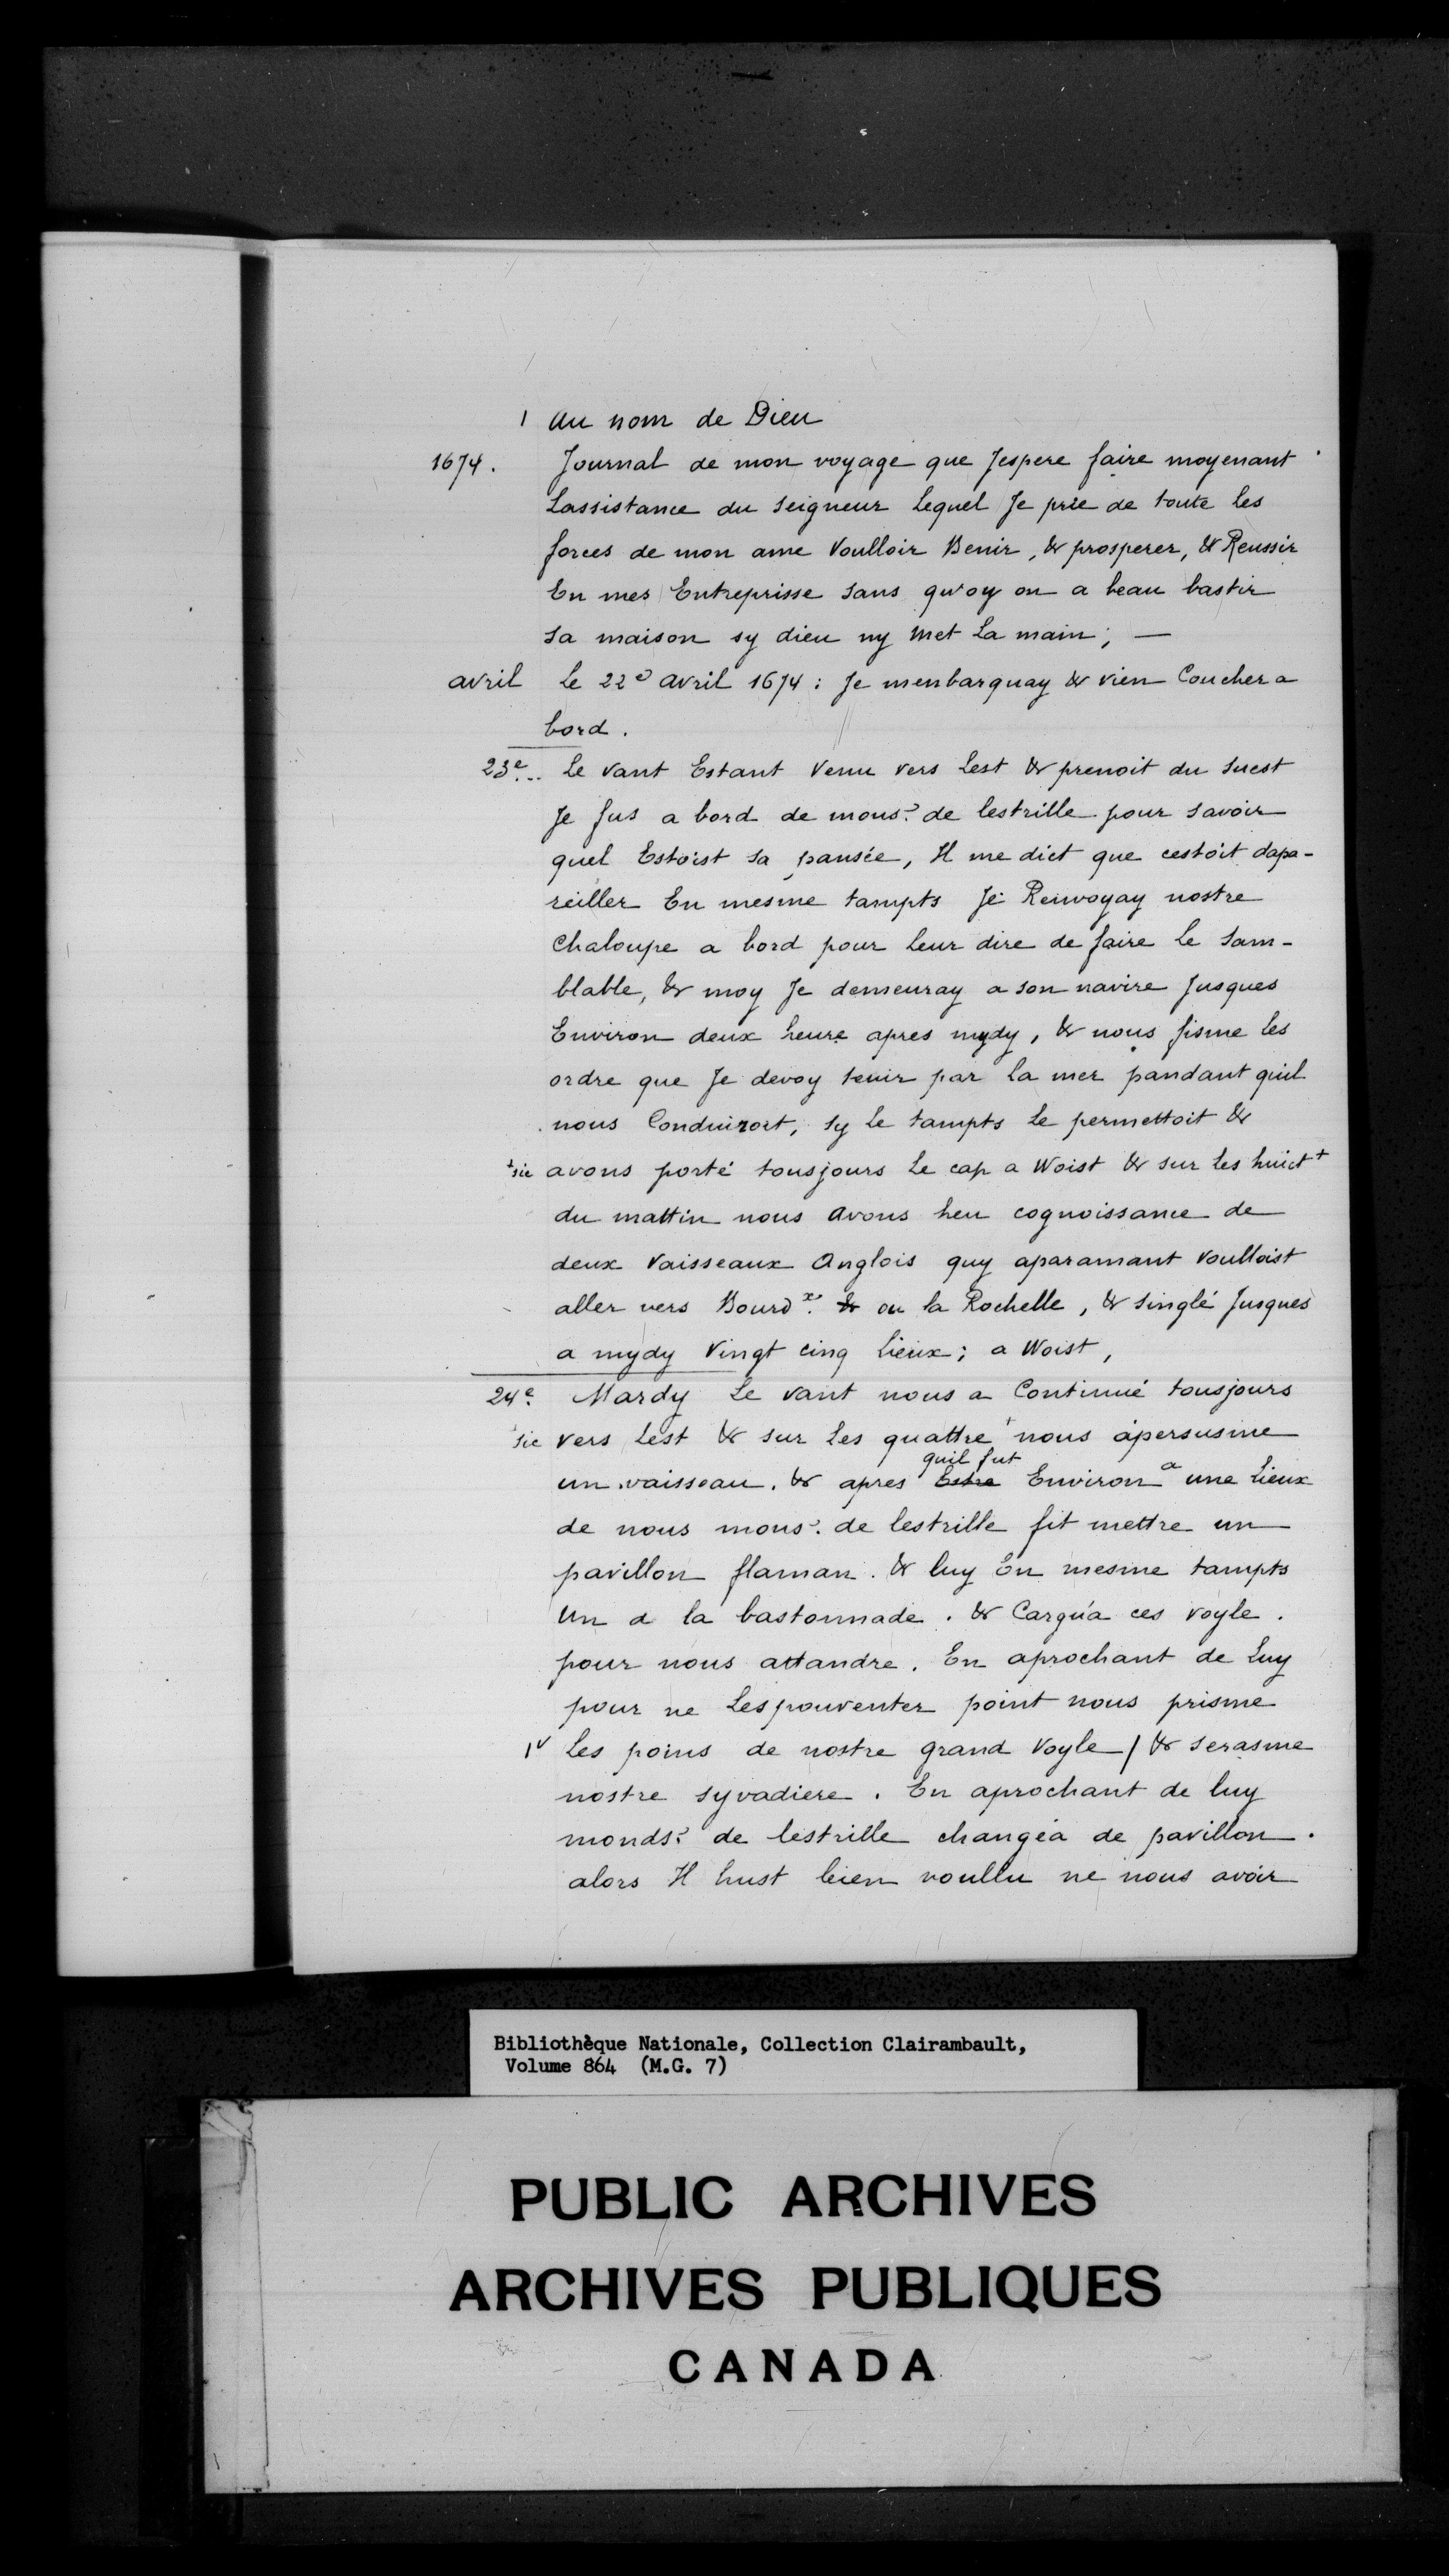 1 Au nom de Dieu
1674. Journal de mon voyage que Jespere faire moyenant
Lassistance du seigneur lequel Je prie de toute les
forces de mon ame Voulloir Benir, & prosperer, & Reussir
En mes Entreprisse sans qu'oy on a beau bastir
sa maison sy dieu ny met La main; —
avril Le 22e avril 1674: Je menbarquay & vien Coucher a
bord.
23e... Le vant Estant Venu vers Lest & prenoit du suest
Je fus a bord de monsr de lestrille pour savoir
quel Estoist sa pansée, Il me dict que cestoit dapa-
reiller En mesme tampts Je Renvoyay nostre
Chaloupe a bord pour leur dire de faire le sam-
blable, & moy Je demeuray a son navire Jusques
Environ deux heure apres mydy, & nous fisme les
ordre que Je devoy tenir par la mer pandant quil
nous Conduizoit, sy le tampts le permettoit &
+sic avons porté tousjours Le cap a Woist & sur les huict+
du mattin nous avons heu cognoissance de
deux Vaisseaux Anglois quy aparamant voulloist
aller vers Bourdx. & ou la Rochelle, & singlé Jusques
a mydy Vingt cinq Lieux; a Woist,
24e. Mardy Le vant nous a Continué tousjours
sic vers Lest & sur Les quattre+ nous apersusme
quil fut
un vaisseau. & apres Estre Environ a une Lieux
de nous monsr. de lestrille fit mettre un
pavillon flaman. & luy En mesme tampts
Un a la bastonnade. & Carguà ces voyle.
pour nous attandre. En aprochant de Luy
pour ne Lespouventer point nous prisme
1v Les poins de nostre grand Voyle / & serasme
nostre syvadiere. En aprochant de luy
mondsr de lestrille changea de pavillon.
alors Il hust bien voullu ne nous avoir
Bibliothèque Nationale, Collection Clairambault,
Volume 864 (M.G. 7)
PUBLIC ARCHIVES
ARCHIVES PUBLIQUES
CANADA